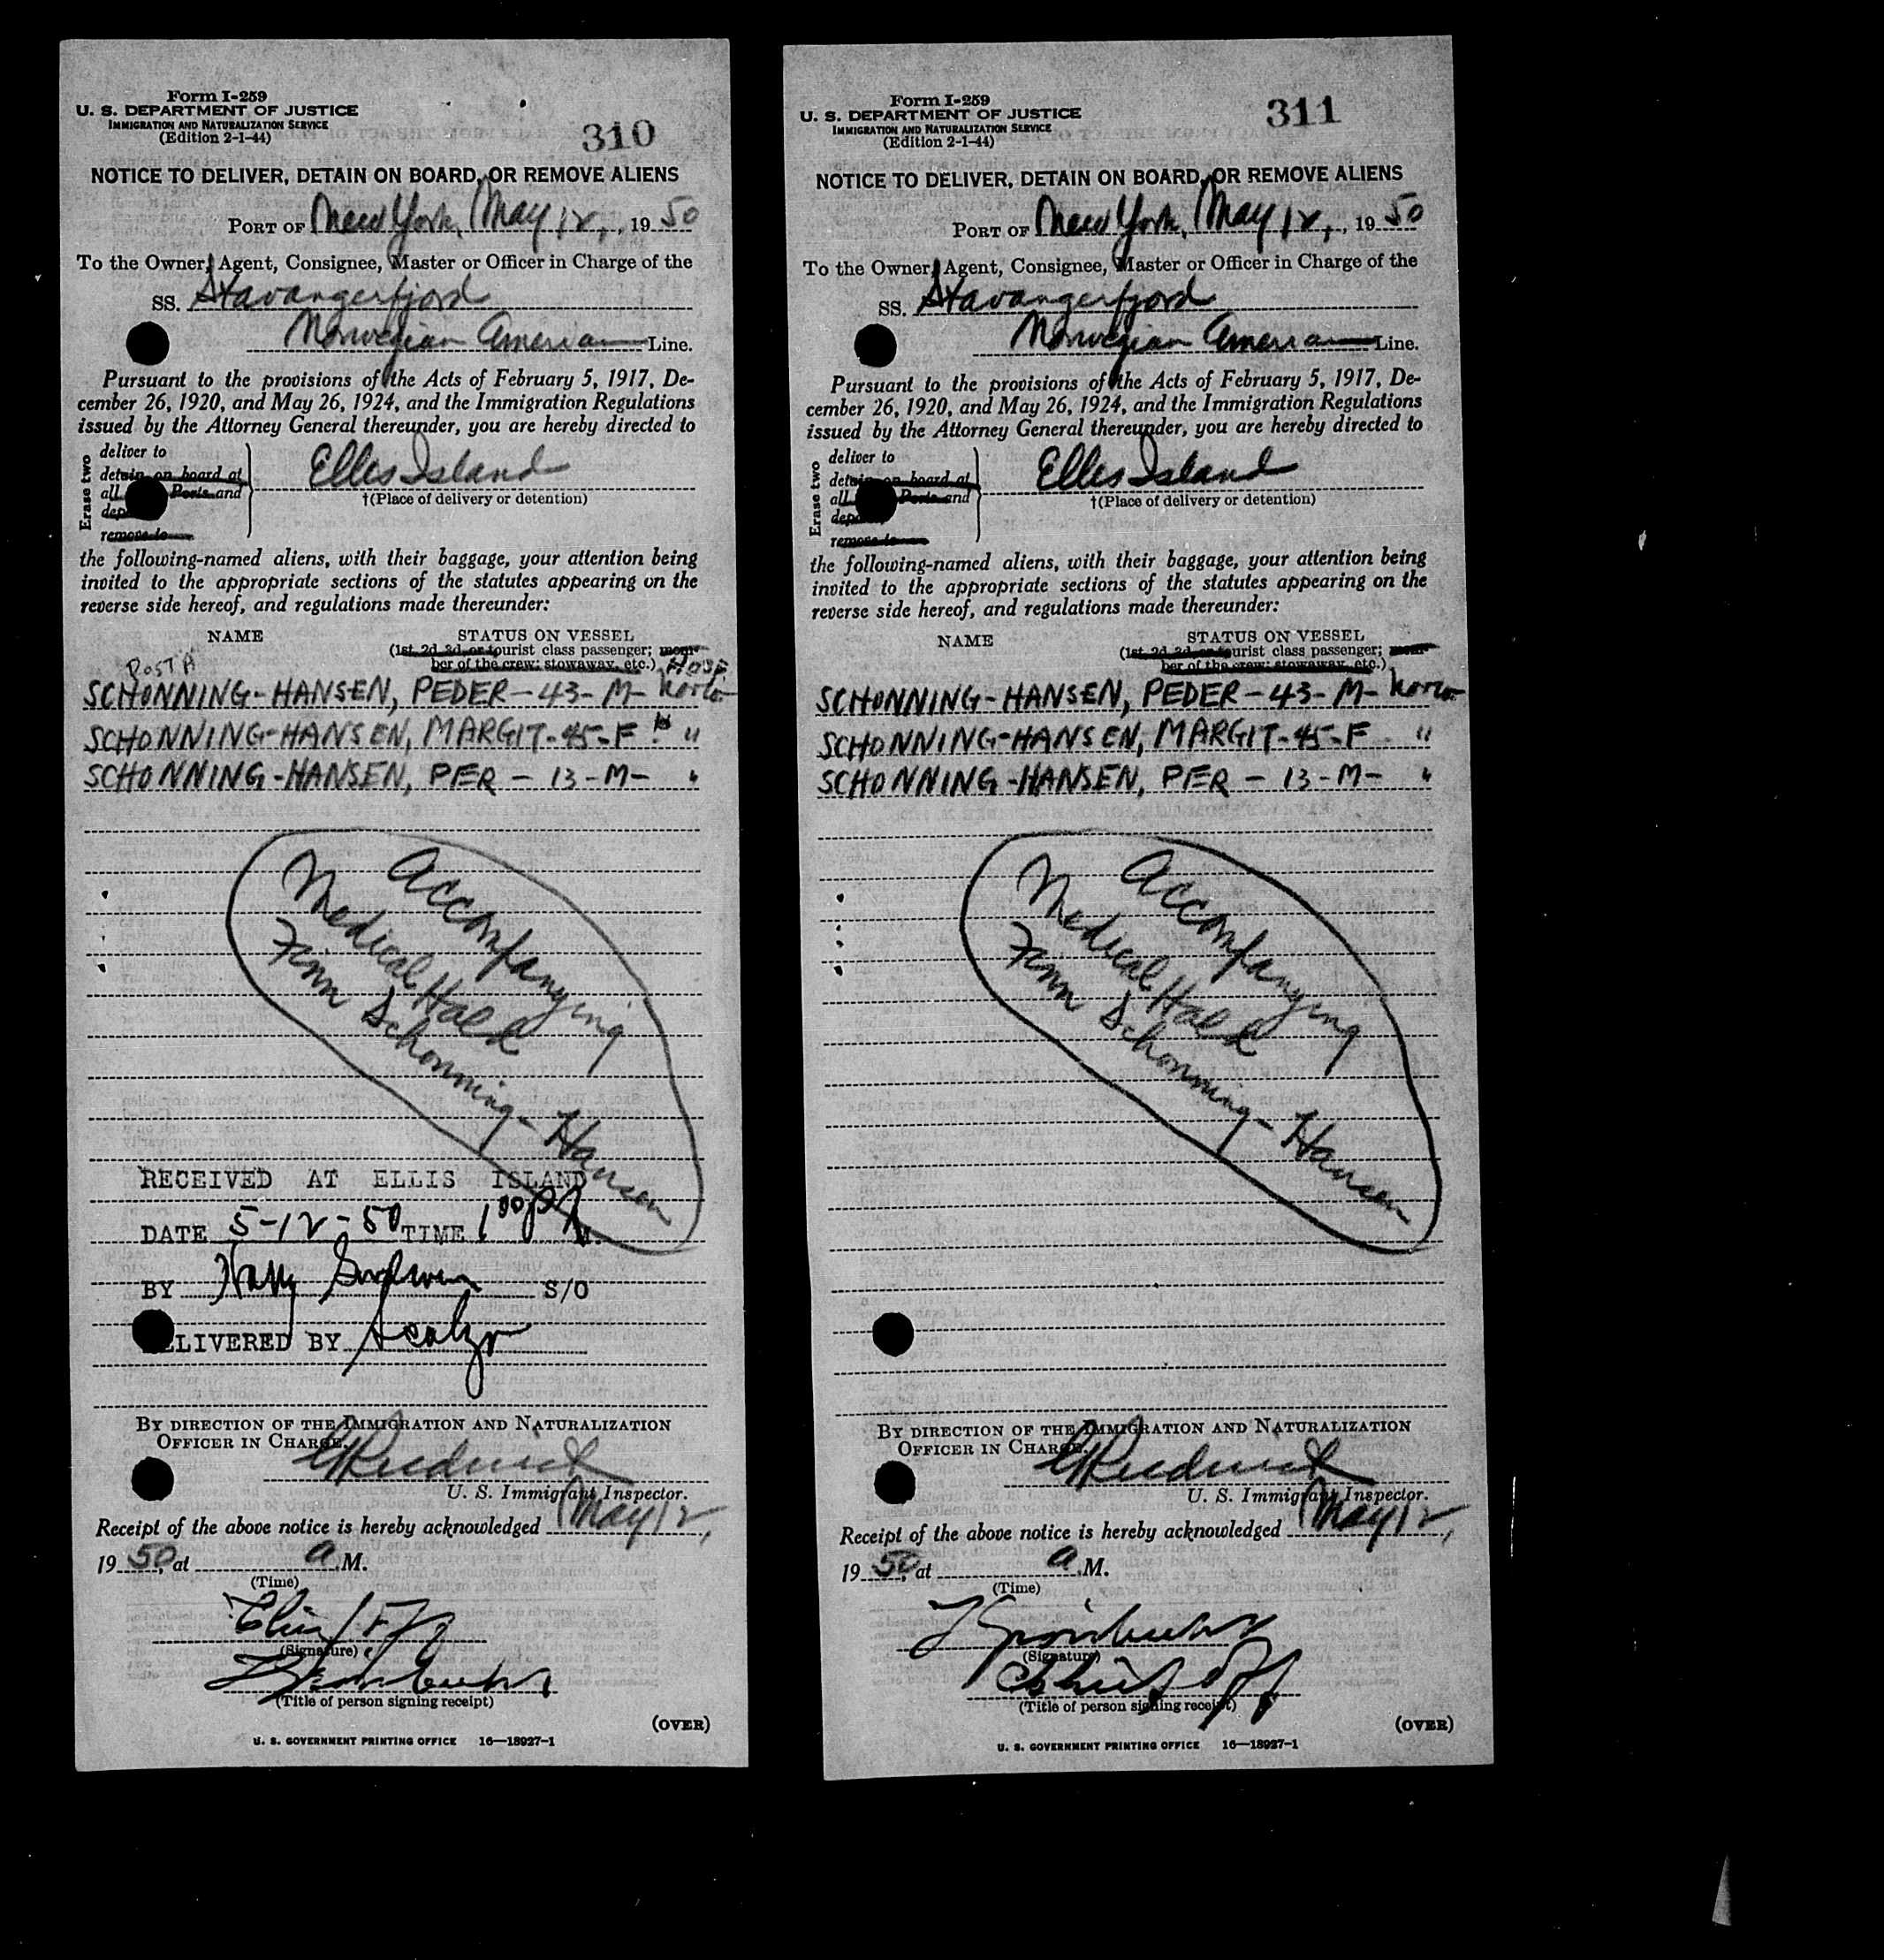 Form I-259
U. S. DEPARTMENT OF JUSTICE
IMMIGRATION AND NATURALIZATION SERVICE
(Edition 2-1-44)
310
NOTICE TO DELIVER, DETAIN ON BOARD, OR REMOVE ALIENS
PORT OF New York, May 12, , 19 50
To the Owner, Agent, Consignee, Master or Officer in Charge of the
SS. Stavangerfjord
Norwegian America Line.
Pursuant to the provisions of the Acts of February 5, 1917, De-
cember 26, 1920, and May 26, 1924, and the Immigration Regulations
issued by the Attorney General thereunder, you are hereby directed to
Erase two
deliver to
detain on board at
all Ports and
remove to
Ellis Island
†(Place of delivery or detention)
the following-named aliens, with their baggage, your attention being
invited to the appropriate sections of the statutes appearing on the
reverse side hereof, and regulations made thereunder:
NAME STATUS ON VESSEL
(1st, 2d, 3d, or tourist class passenger; mem-
ber of the crew; stowaway, etc.)
POST A HOSP
SCHONNING-HANSEN, PEDER - 43 - M - Norw
SCHONNING-HANSEN, MARGIT - 45 - F "
SCHONNING-HANSEN, PER - 13 - M - "
Accompanying
Medical Hold
Finn Schonning-Hansen
RECEIVED AT ELLIS ISLAND
DATE 5-12-50 TIME 1 00 P M.
BY Harry S/O
LIVERED BY Scalzo
BY DIRECTION OF THE IMMIGRATION AND NATURALIZATION
OFFICER IN CHARGE.
U. S. Immigrant Inspector.
Receipt of the above notice is hereby acknowledged May 12,
19 50, at a.M.
(Time)
(Signature)
(Title of person signing receipt)
(OVER)
U. S. GOVERNMENT PRINTING OFFICE 16—18927-1
Form I-259
U. S. DEPARTMENT OF JUSTICE
IMMIGRATION AND NATURALIZATION SERVICE
(Edition 2-1-44)
311
NOTICE TO DELIVER, DETAIN ON BOARD, OR REMOVE ALIENS
PORT OF New York, May 12, , 19 50
To the Owner, Agent, Consignee, Master or Officer in Charge of the
SS. Stavangerfjord
Norwegian America Line.
Pursuant to the provisions of the Acts of February 5, 1917, De-
cember 26, 1920, and May 26, 1924, and the Immigration Regulations
issued by the Attorney General thereunder, you are hereby directed to
Erase two
deliver to
detain on board at
all Ports and
remove to
Ellis Island
†(Place of delivery or detention)
the following-named aliens, with their baggage, your attention being
invited to the appropriate sections of the statutes appearing on the
reverse side hereof, and regulations made thereunder:
NAME STATUS ON VESSEL
(1st, 2d, 3d, or tourist class passenger; mem-
ber of the crew; stowaway, etc.)
SCHONNING-HANSEN, PEDER - 43 - M - Norw
SCHONNING-HANSEN, MARGIT - 45 - F "
SCHONNING-HANSEN, PER - 13 - M - "
Accompanying
Medical Hold
Finn Schonning-Hansen
BY DIRECTION OF THE IMMIGRATION AND NATURALIZATION
OFFICER IN CHARGE.
U. S. Immigrant Inspector.
Receipt of the above notice is hereby acknowledged May 12,
19 50, at a.M.
(Time)
(Signature)
(Title of person signing receipt)
(OVER)
U. S. GOVERNMENT PRINTING OFFICE 16—18927-1